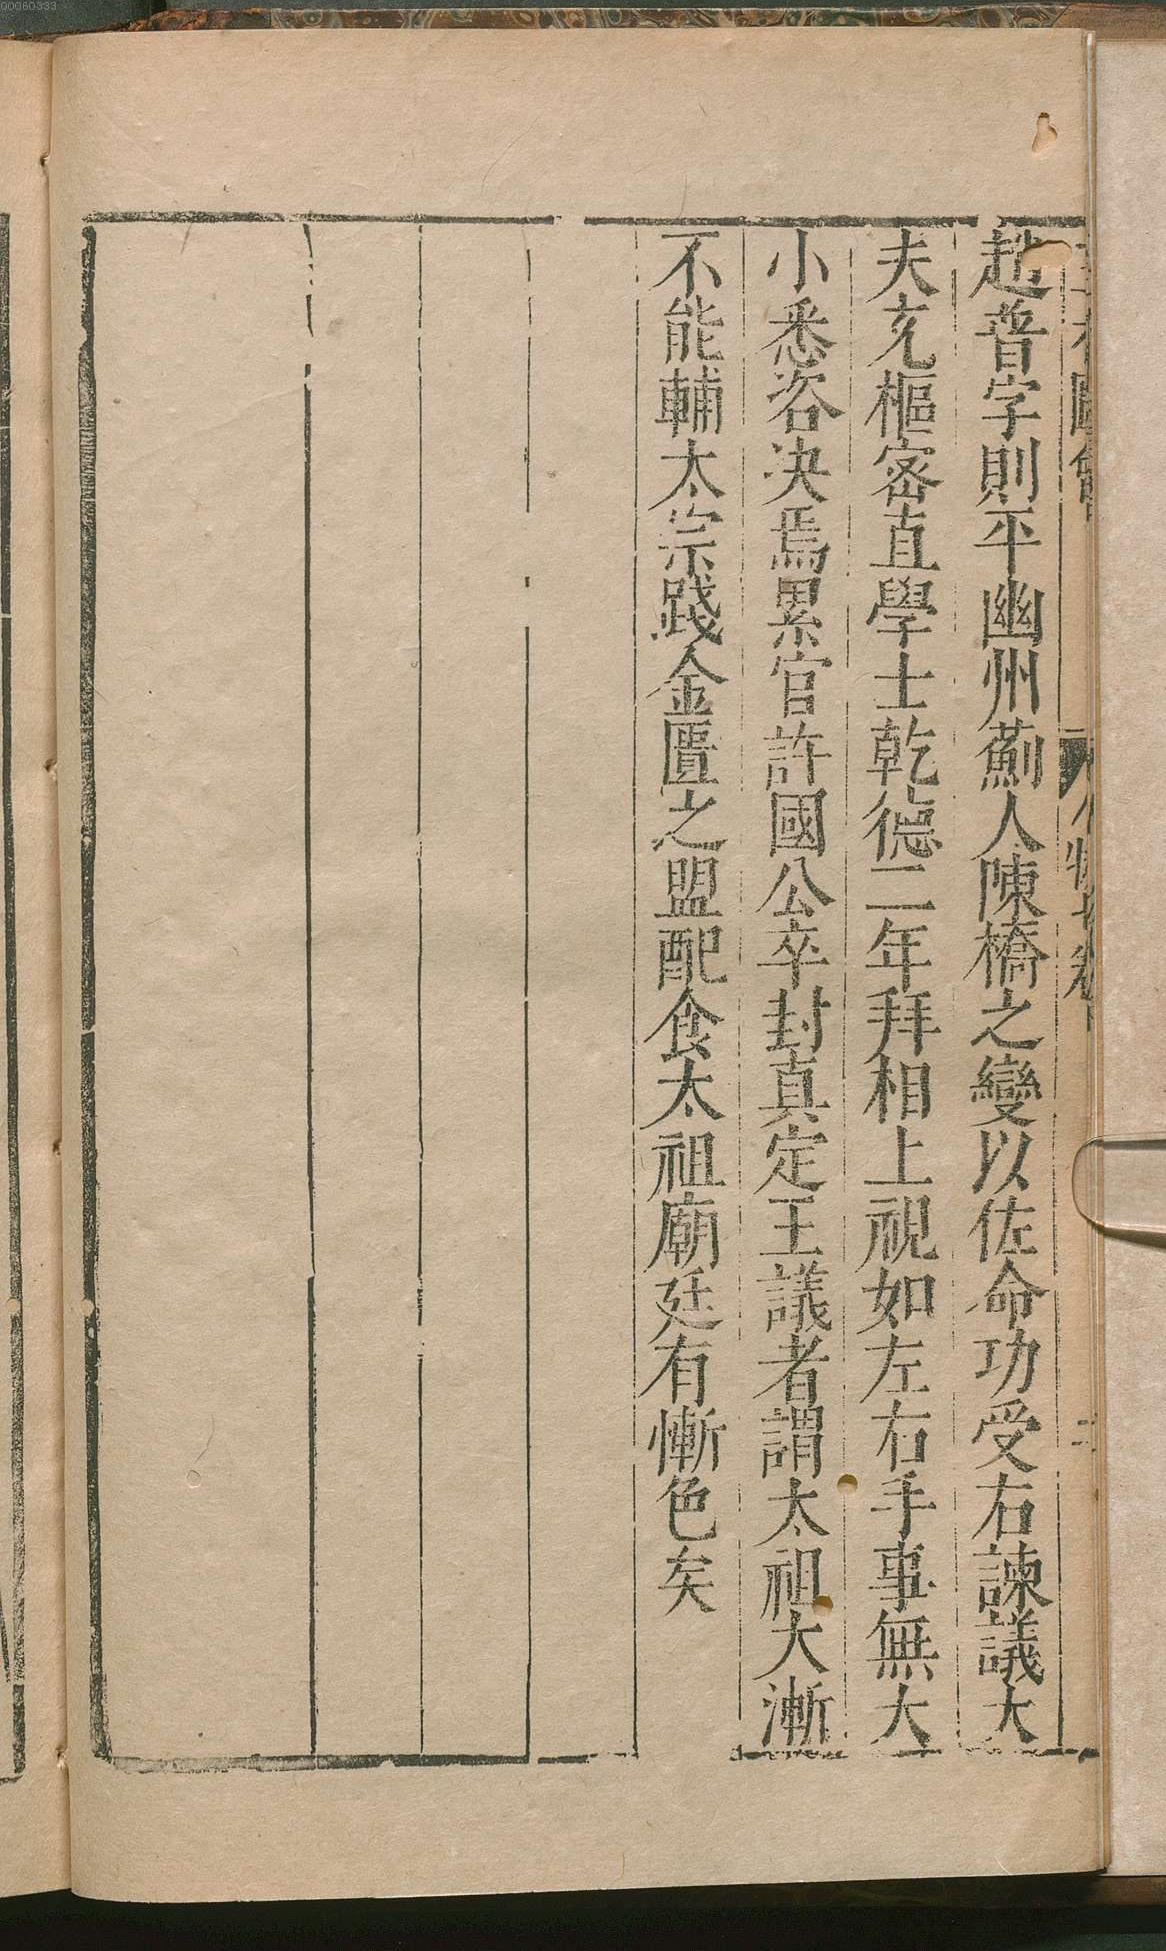 趙普字則平幽州薊人陳橋之變以佐命功受右諫議大
夫充樞密直學士乾德二年拜相上視如左右手事無大
小悉咨决焉累官許國公卒封真定王議者謂太祖大漸
不能輔太宗踐金匱之盟配食太祖廟廷有慚色矣
00060333